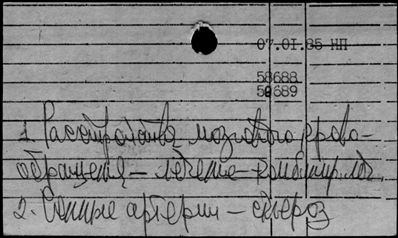 07.01.85 НП
58688
58689
1. Расстройства мозгового крово-
обращения – лечение –
2. Сонные артерии – склероз